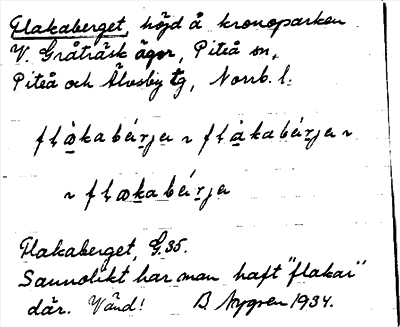 Flakaberget, höjd å kronoparken
V. Gråträsk ägor, Piteå sn,
Piteå och Älvsby tg, Norrb. l.
flåkabérja ~ flåkabérja ~
~ flækabérja
Flakaberget, G.35.
Sannolikt har man haft "flakar"
där. Vänd! B. Nygren 1934.